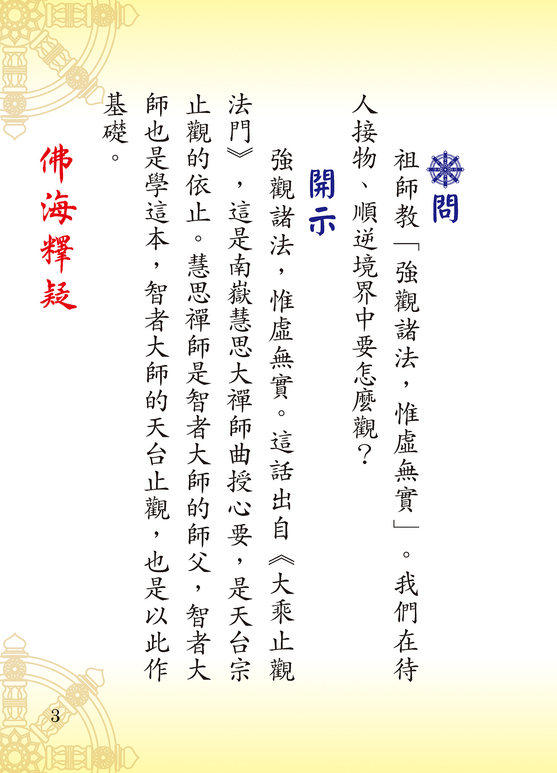 問
祖師教「強觀諸法，惟虛無實」。我們在待
人接物、順逆境界中要怎麼觀？
開示
強觀諸法，惟虛無實。這話出自《大乘止觀
法門》，這是南嶽慧思大禪師曲授心要，是天台宗
止觀的依止。慧思禪師是智者大師的師父，智者大
師也是學這本，智者大師的天台止觀，也是以此作
基礎。
佛海釋疑
3